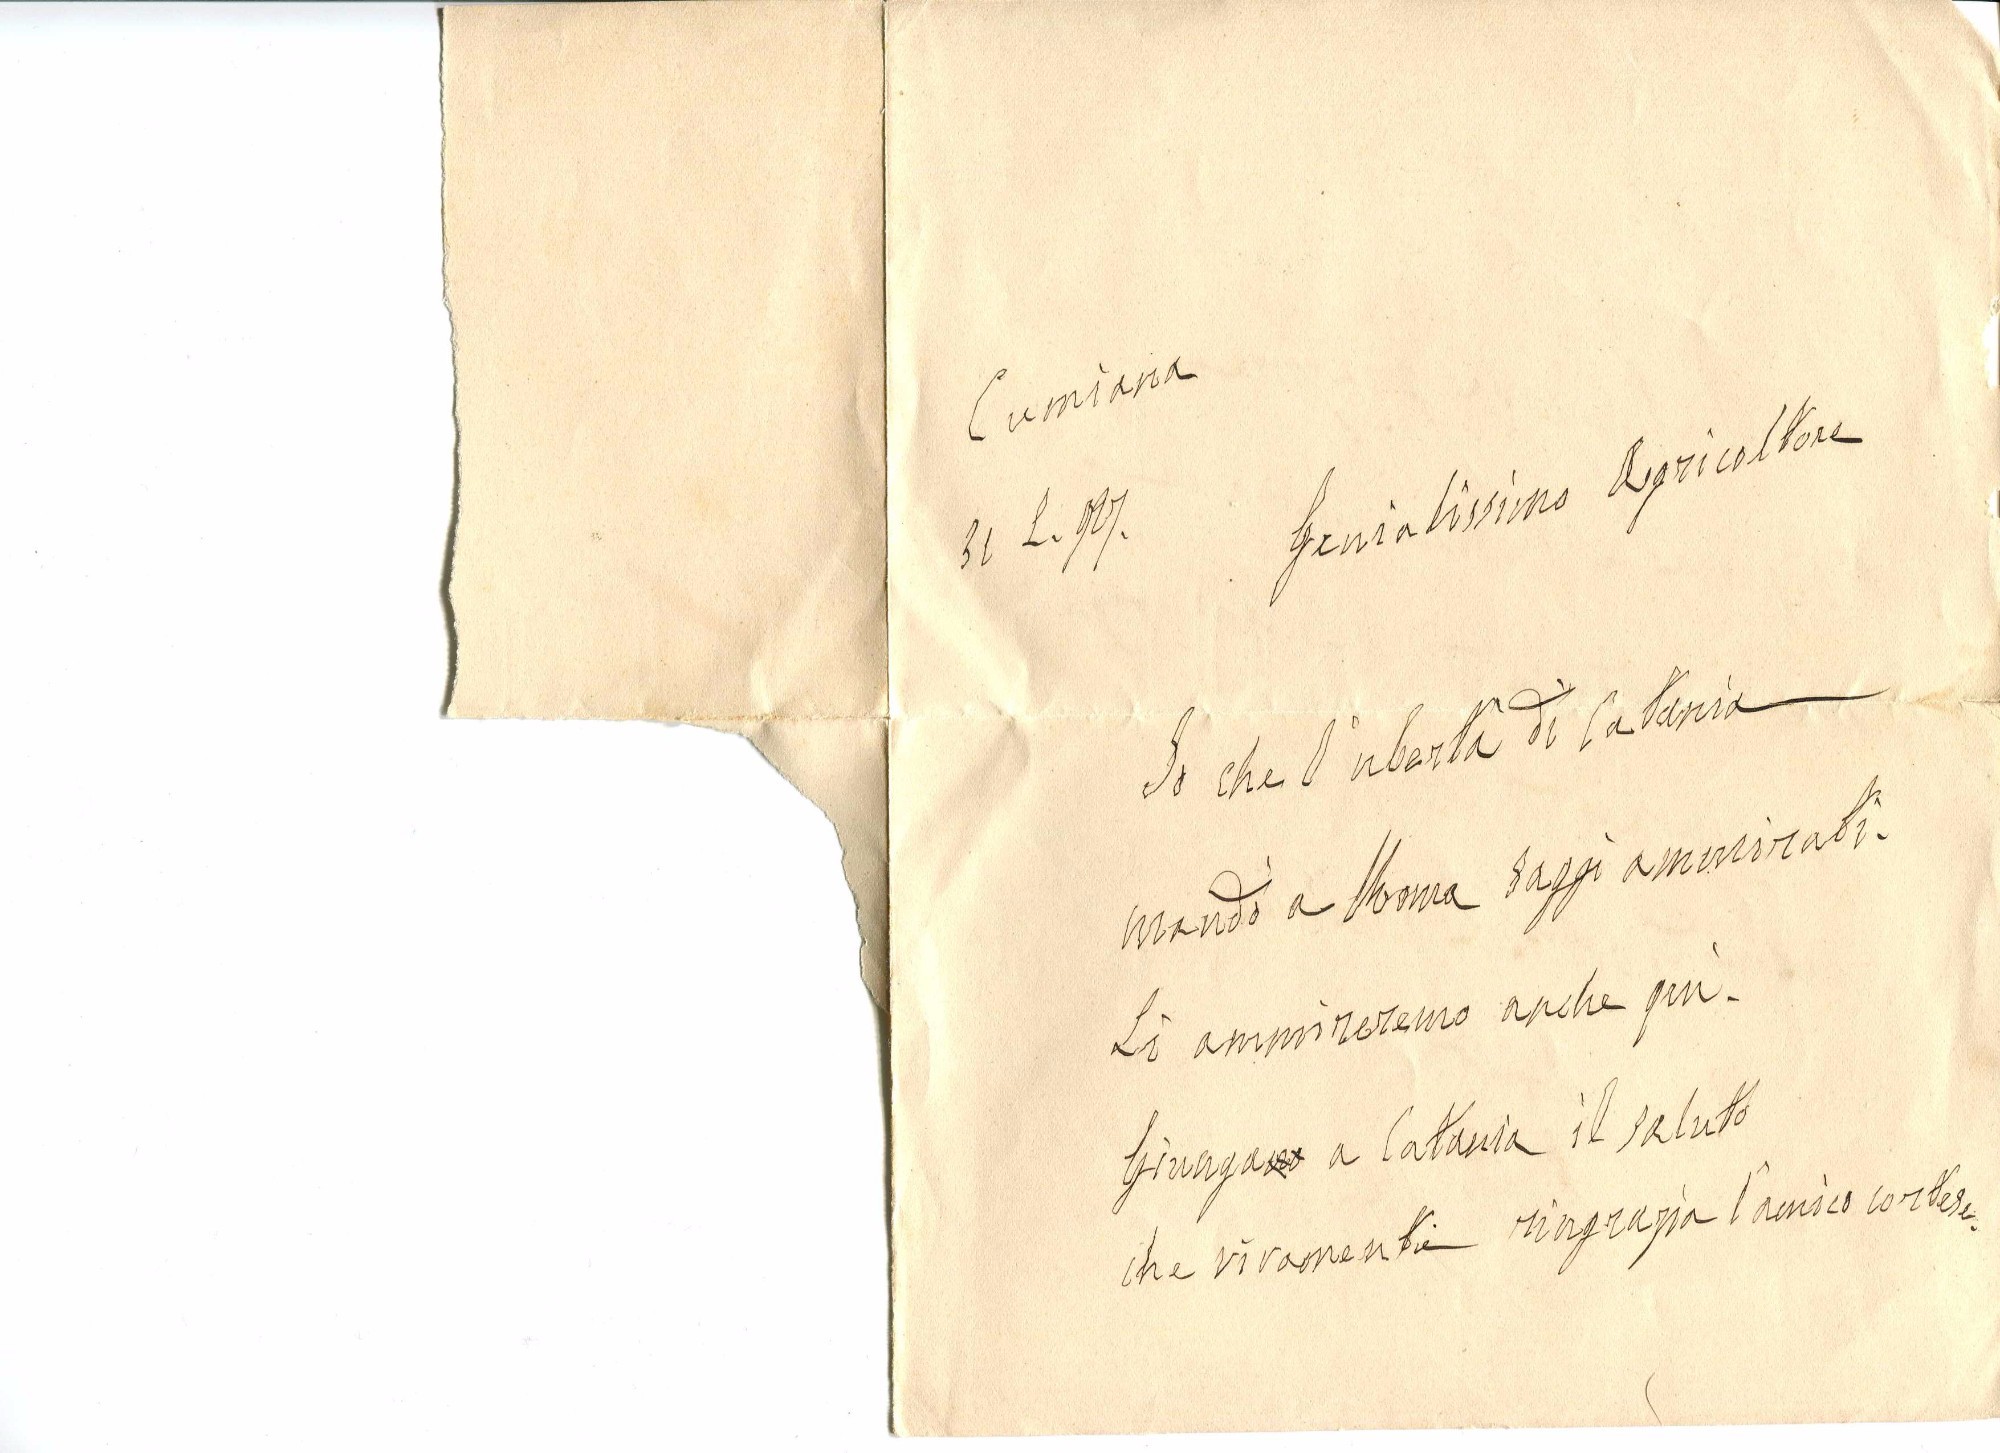 Cumiana
31 L. 97.
Genialissimo Agricoltore
So che l'ubertà di Catania
mandò a Roma saggi ammirati.
Li ammireremo anche qui.
Giunga a Catania il saluto
che vivamente ringrazia l'amico cortese.